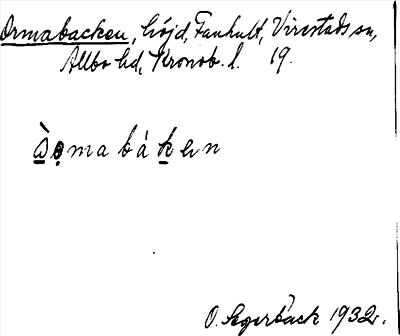 Ormabacken, höjd, Fanhult, Virestads sn,
Allbo hd, Kronob. l. 19.
òọmabáken
O. Segerbäck 1932.